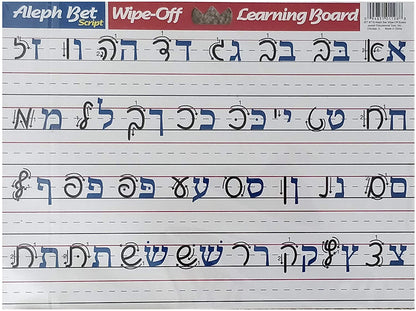 Aleph Bet Script Wipe-Off Learning Board
אא בּבּ בב גג דד הה וו זז
חח טט יי כּכּ ככ ךך לל ממ
םם ננ ןן סס עע פּפּ פפ ףף
צצ ץץ קק רר שׁשׁ שׂשׂ תּתּ תת